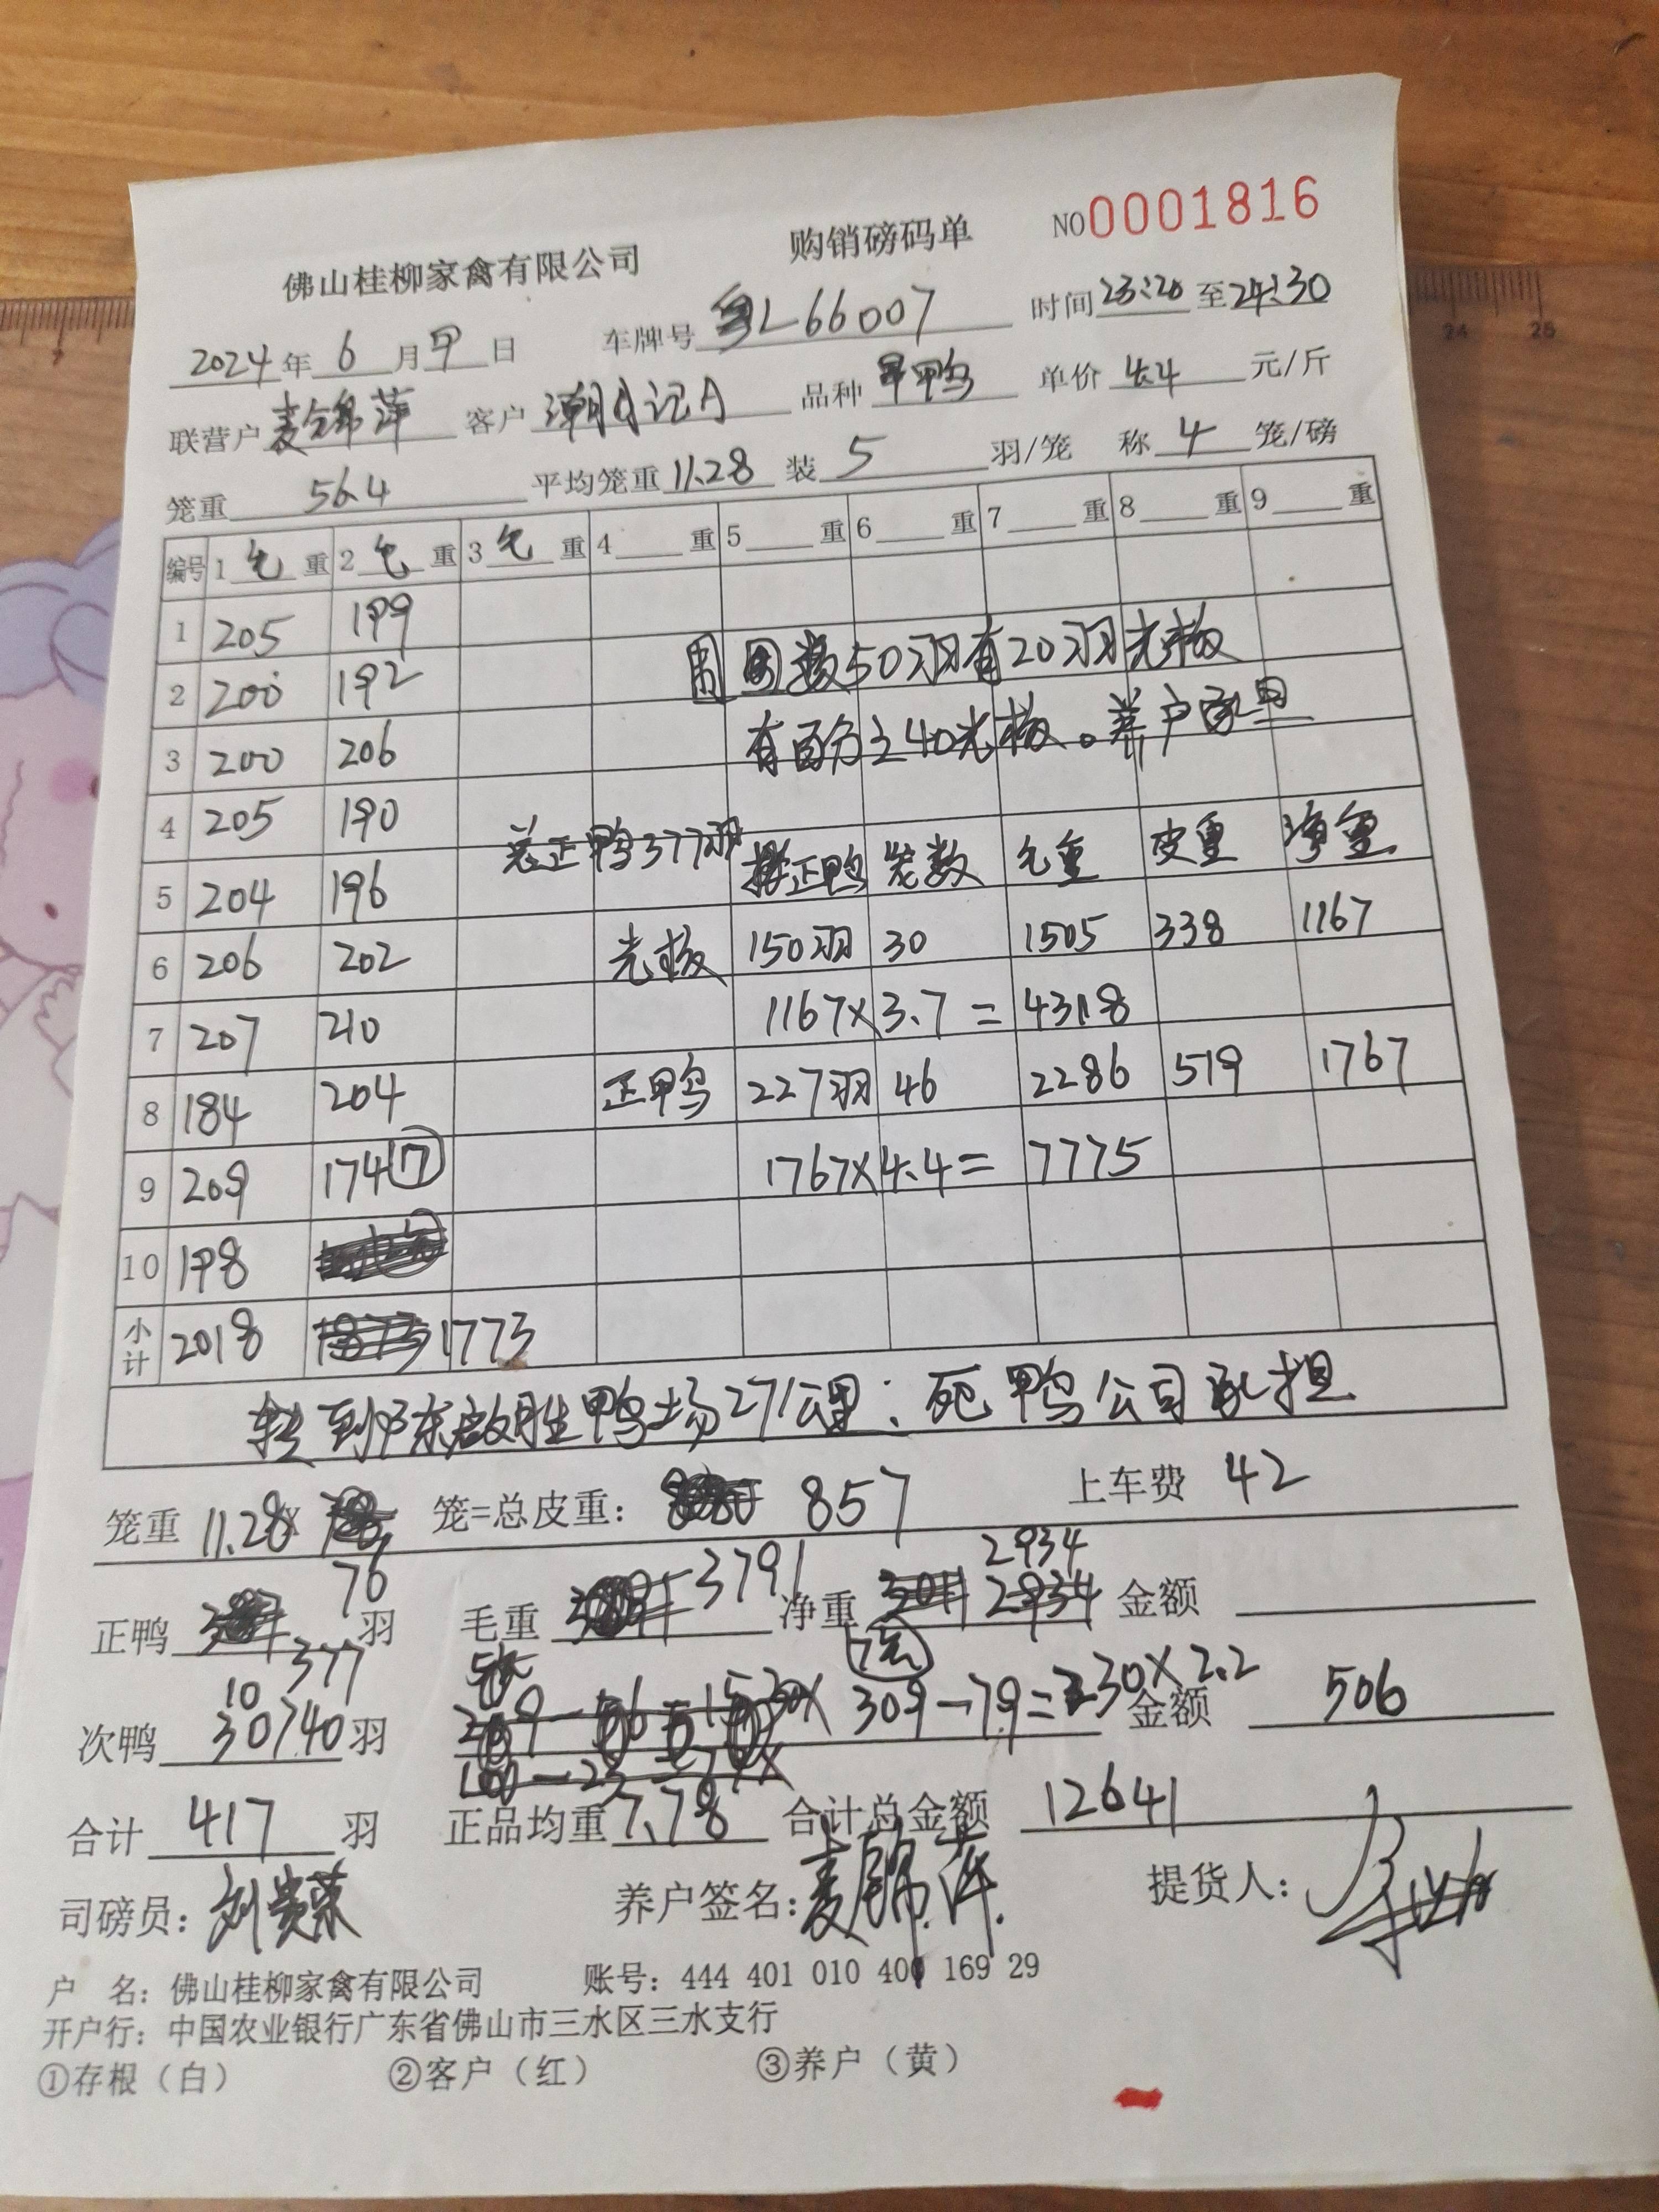 佛山桂柳家禽有限公司 购销磅码单 NO0001816
2024年6月9日 车牌号 粤L66007 时间23:20至24:30
联营户 麦锦萍 客户 潮记A 品种 鸭 单价 4.4 元/斤
笼重 56.4 平均笼重 11.28 装 5 羽/笼 称 4 笼/磅
编号 1 毛 重 2 毛 重 3 毛 重 4 重 5 重 6 重 7 重 8 重 9 重
1 205 199
2 200 192 50羽有20羽光板
3 200 206 有百分之40光板。养户
4 205 190
5 204 196 总正鸭377羽 正鸭 笼数 毛重 皮重 净重
6 206 202 光板 150羽 30 1505 338 1167
7 207 210 1167×3.7=4318
8 184 204 正鸭 227羽 46 2286 519 1767
9 209 174⑰ 1767×4.4=7775
10 198
小计 2018 1773
转到 鸭场27公里:死鸭公司承担
笼重 11.28× 76 笼=总皮重: 857 上车费 42
正鸭 377 羽 毛重 3791 净重 2934 2934 金额
次鸭 10 30/40羽 309-79=230×2.2 金额 506
合计 417 羽 正品均重 7.78 合计总金额 12641
司磅员: 刘贵荣 养户签名: 麦锦萍 提货人:
户 名: 佛山桂柳家禽有限公司 账号: 444 401 010 400 169 29
开户行: 中国农业银行广东省佛山市三水区三水支行
①存根(白) ②客户(红) ③养户(黄)